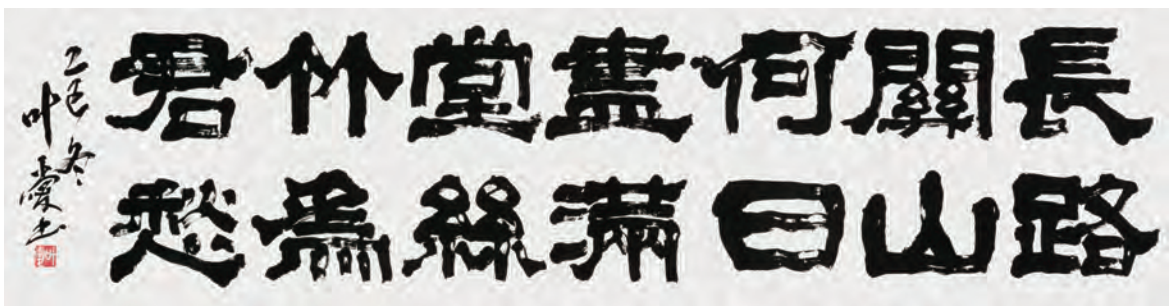 長路
關山
何日
盡滿
堂絲
竹為
君愁
乙巳冬
叶